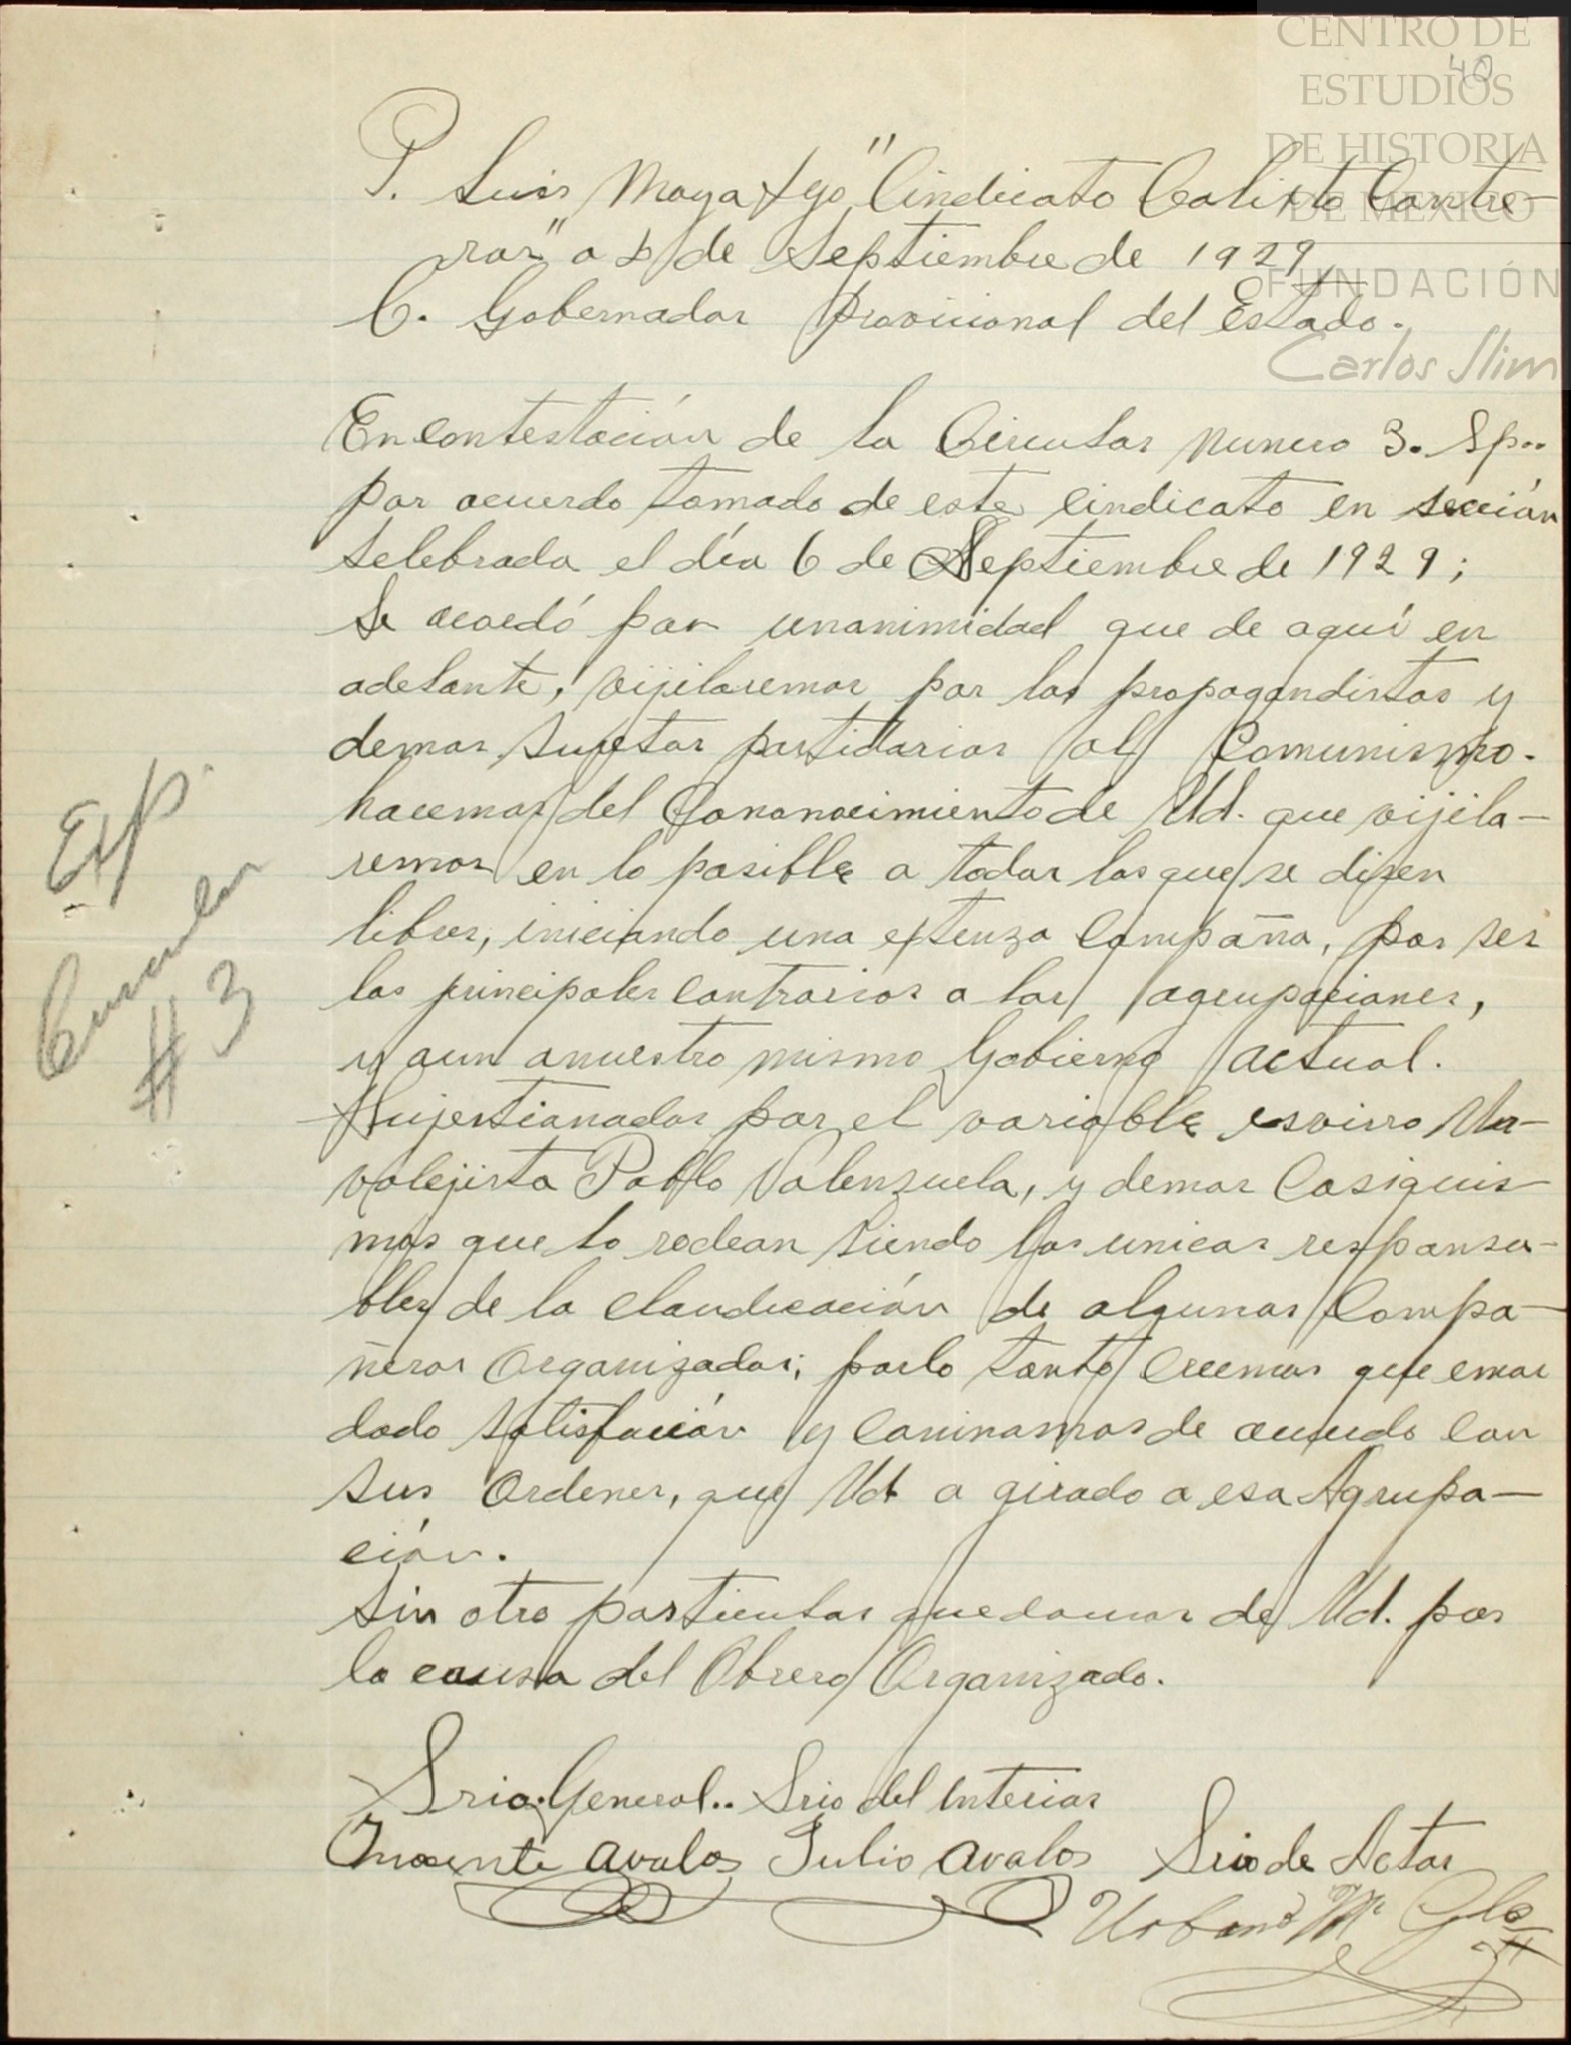 CENTRO DE
ESTUDIOS
DE HISTORIA
DE MEXICO
FUNDACIÓN
Carlos Slim
40
P. Luis Moya Dgo "Cindicato Calixto Contre-
ras" a 8 de Septiembre de 1929
C. Gobernador Provicional del Estado.
En contestación de la Circular Numero 3. Sp..
por acuerdo tomado de este cindicato en sección
selebrada el día 6 de Septiembre de 1929;
Se acordó por unanimidad que de aquí en
adelante, vijilaremos por los propagandistas y
demas sujetos partidarios al Comunismo.
hacemos del Cononocimiento de Ud. que vijila-
remos en lo posible a todos los que se dizen
libres, iniciando una extenza Campaña, por ser
los principales contrarios a las agrupaciones,
y aun anuestro mismo Gobierno actual.
Sujestionados por el variable esvirro
Pablo Valenzuela, y demas Casiquis-
mos que lo rodean siendo los unicos responsa-
bles de la claudicación de algunos Compa-
ñeros Organizados; porlo tanto creemos que emos
dado satisfación y caminamos de acuerdo con
sus Ordenes, que Ud a girado a esa Agrupa-
ción.
Sin otro particular quedamos de Ud. por
la causa del Obrero Organizado.
Srio. General.. Srio del Interior
Inosente Avalos Julio Avalos Srio de Actas
Urbano Mª Glez
Exp.
Circular
#3